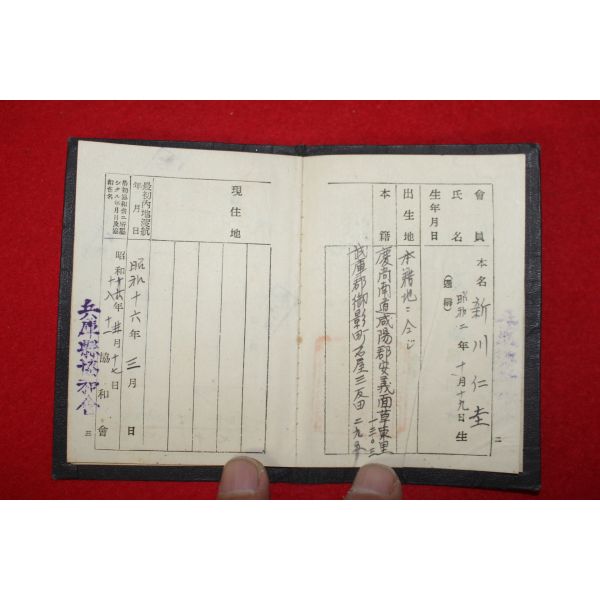 會員
氏名
本名 新川仁奎
(通稱)
生年月日
昭和二年十一月十九日生
出生地
本籍地ニ仝じ
本籍
慶尚南道咸陽郡安義面草東里
一三〇三
兵庫郡御影町石屋三反田二九五
二
現住地
最初內地渡航
年月日
昭和十六年三月日
昭和十六年
十七日
協和會
兵庫縣協和會
三